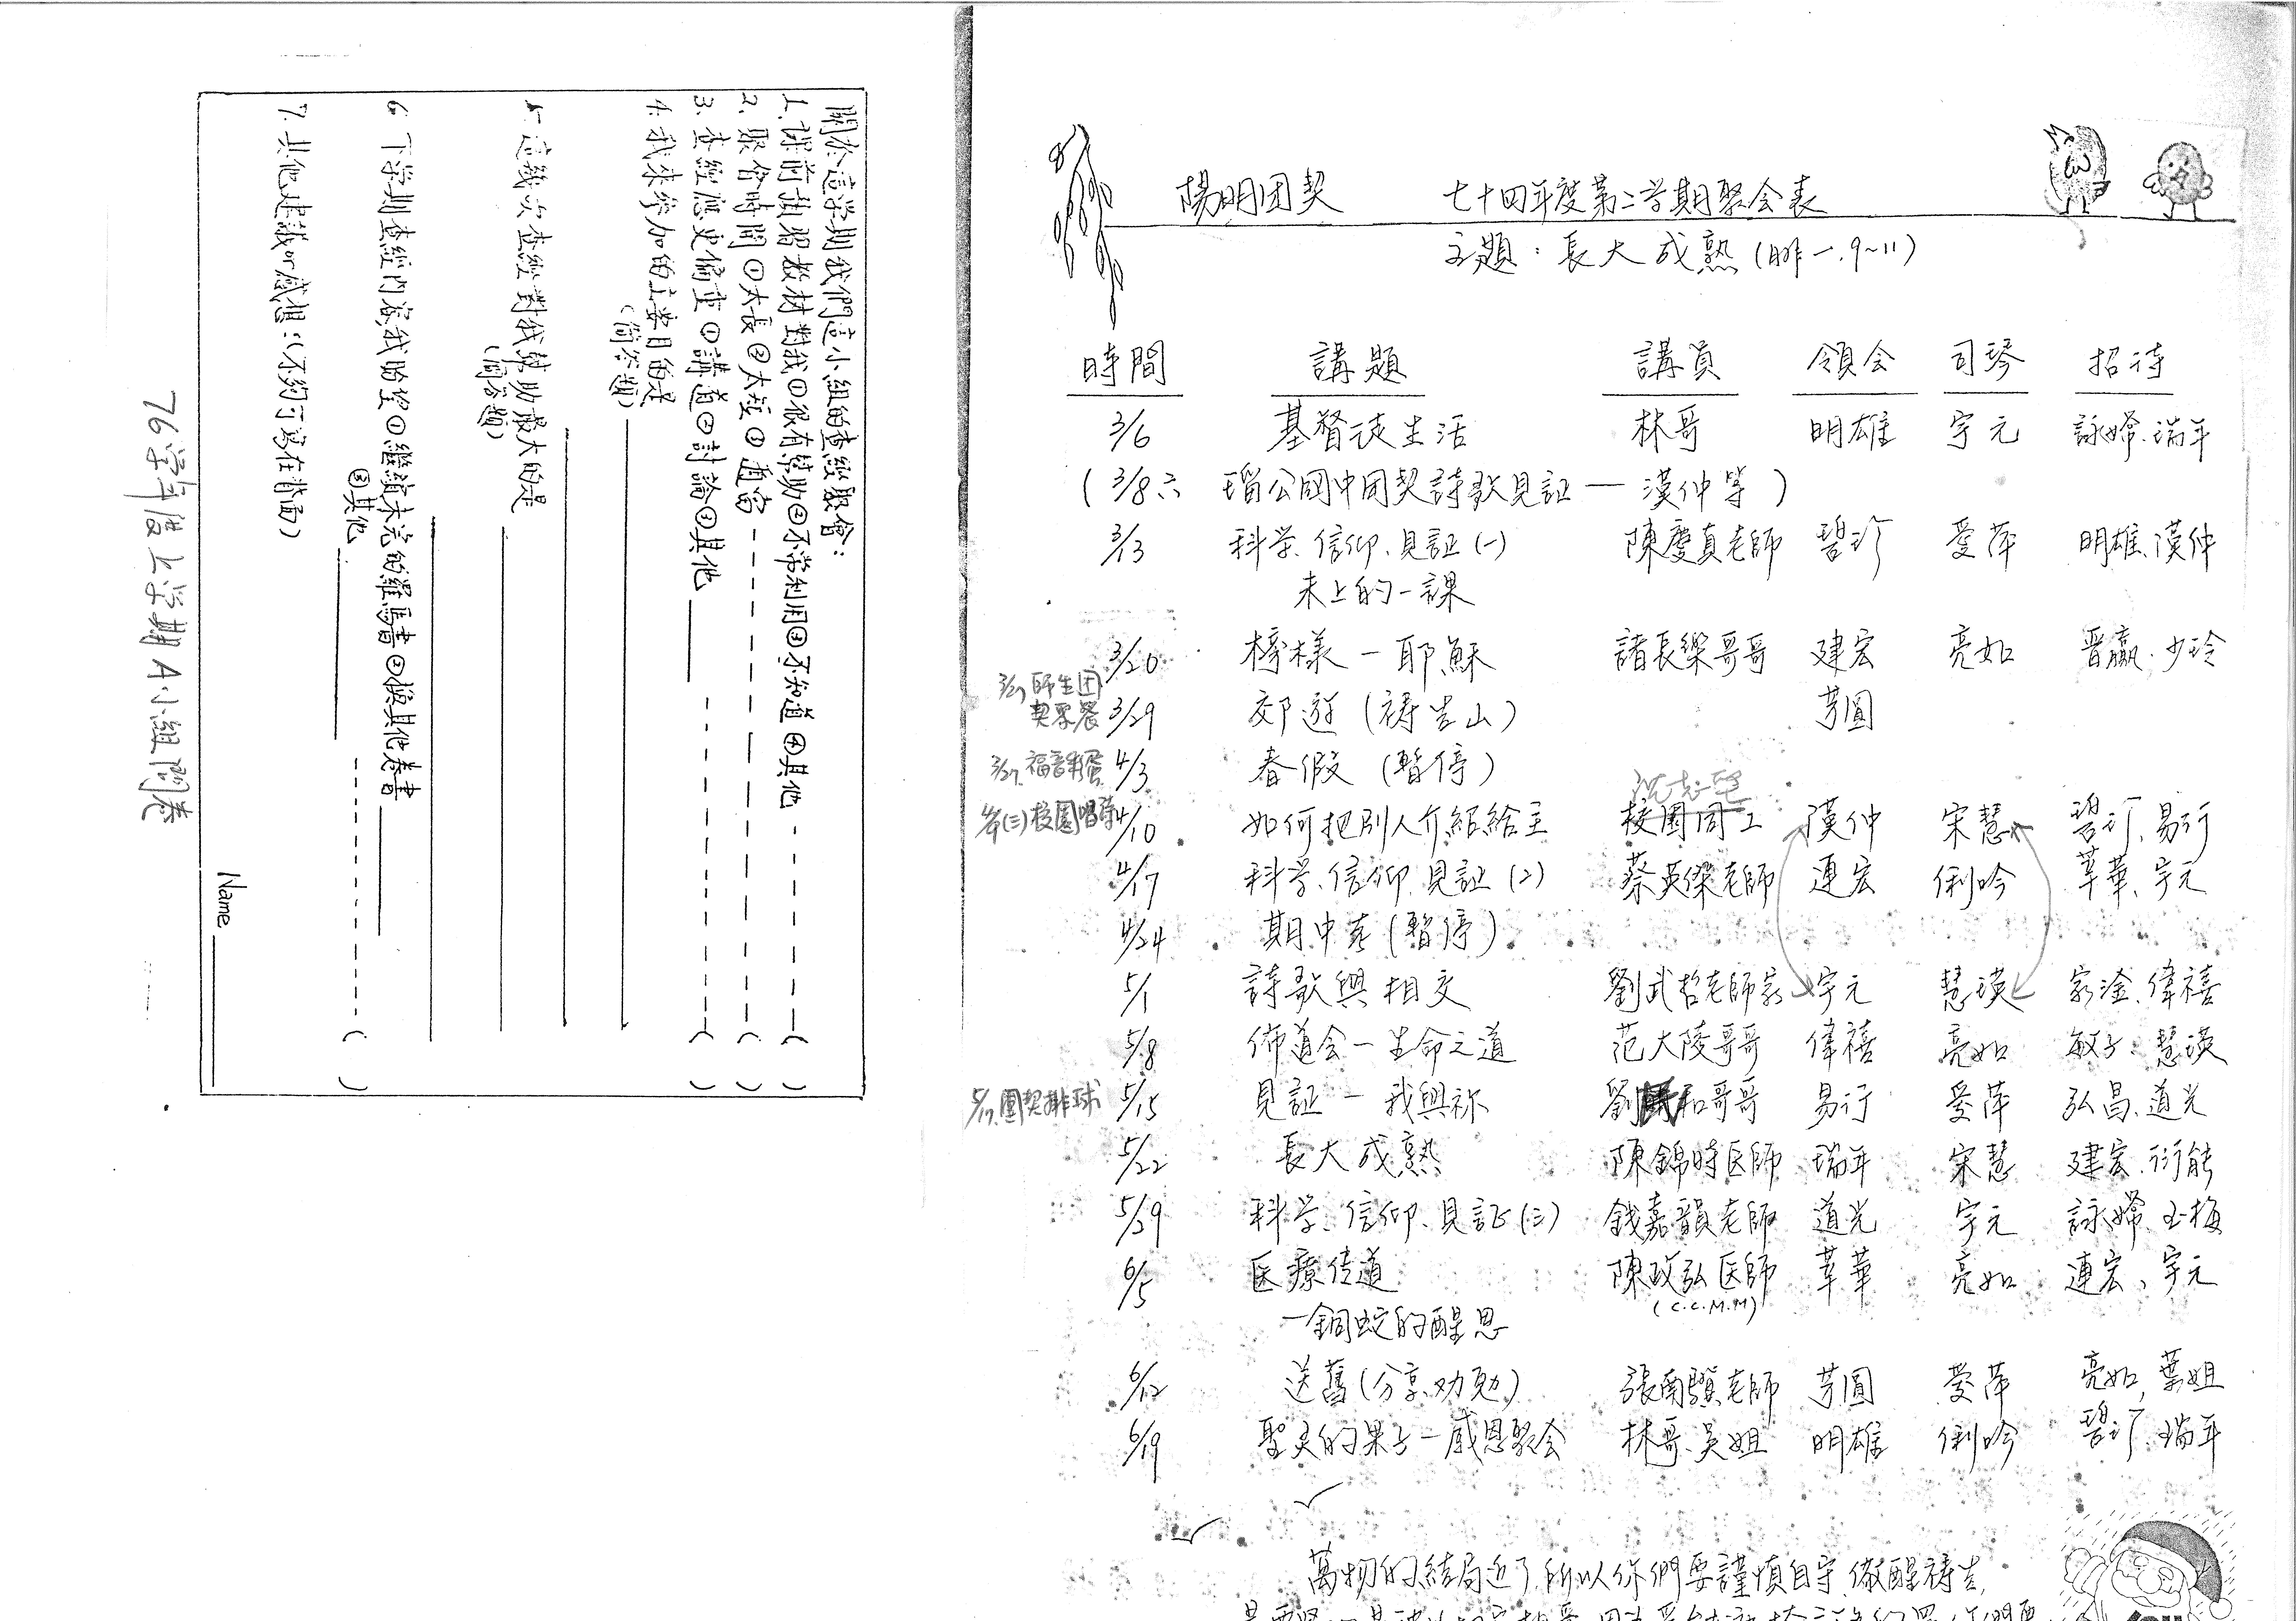 關於這学期我們這小組的查經聚會：
1. 課前預習教材對我①很有幫助②不常利用③不知道④其他 ( )
2. 聚會時間①太長②太短③適當 ( )
3. 查經應更偏重①講道②討論③其他 ( )
4. 我來參加的主要目的是
(簡答題)
5. 這幾次查經對我幫助最大的是
(簡答題)
6. 下学期查經内容,我盼望①繼續未完的羅馬書②換其他卷書
③其他 ( )
7. 其他建議or感想：(不夠可寫在背面)
Name
76學年度上学期A小組問卷
陽明团契 七十四年度第二学期聚会表
主題：長大成熟(腓一.9~11)
時間 講題 講員 領会 司琴 招待
3/6 基督徒生活 林哥 明雄 宇元 詠嫦.瑞年
(3/8六 瑠公國中团契詩歌見証—漢仲等)
3/13 科学.信仰.見証(一) 陳慶真老師 碧珍 愛萍 明雄.漢仲
未上的一課
3/20 榜樣—耶穌 諸長樂哥哥 建宏 亮如 晋贏.少玲
3/27師生团
契聚餐 3/29 郊遊(禱告山) 芳圓
福音 4/3 春假(暫停)
沈志堅
(三)校園唱詩 4/10 如何把別人介紹給主 校園同工 漢仲 宋慧 碧玎.易行
4/17 科学.信仰.見証(2) 蔡英傑老師 連宏 俐吟 莘華.宇元
4/24 期中考(暫停)
5/1 詩歌與相交 劉武哲老師家 宇元 慧瑛 家淦.偉禧
5/8 佈道会—生命之道 范大陵哥哥 偉禧 亮如 敏子.慧瑛
5/17團契排球 5/15 見証—我與祢 劉 和哥哥 易行 愛萍 弘昌.道光
5/22 長大成熟 陳錦時医師 瑞年 宋慧 建宏.衍能
5/29 科学.信仰.見証(三) 錢嘉韻老師 道光 宇元 詠嫦.玉梅
6/5 医療传道 陳政弘医師 莘華 亮如 連宏、宇元
(C.C.M.M)
—銅蛇的醒思
6/12 送舊(分享.劝勉) 張南驥老師 芳圓 愛萍 亮如,葉姐
6/19 聖灵的果子—感恩聚会 林哥.吳姐 明雄 俐吟 碧玎.瑞年
萬物的結局近了,所以你們要謹慎自守,儆醒禱告,